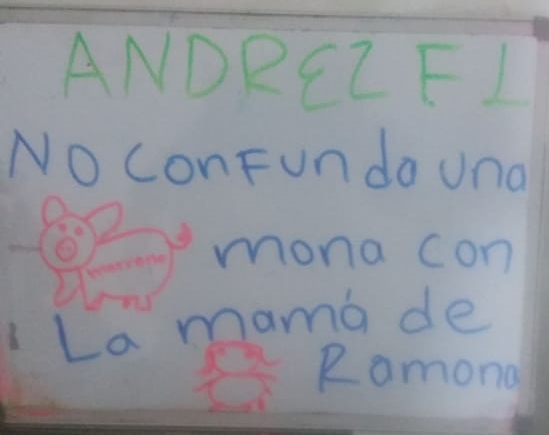 ANDREZ F L
NO conFundo una
marrano
mona con
La mamá de
Ramona